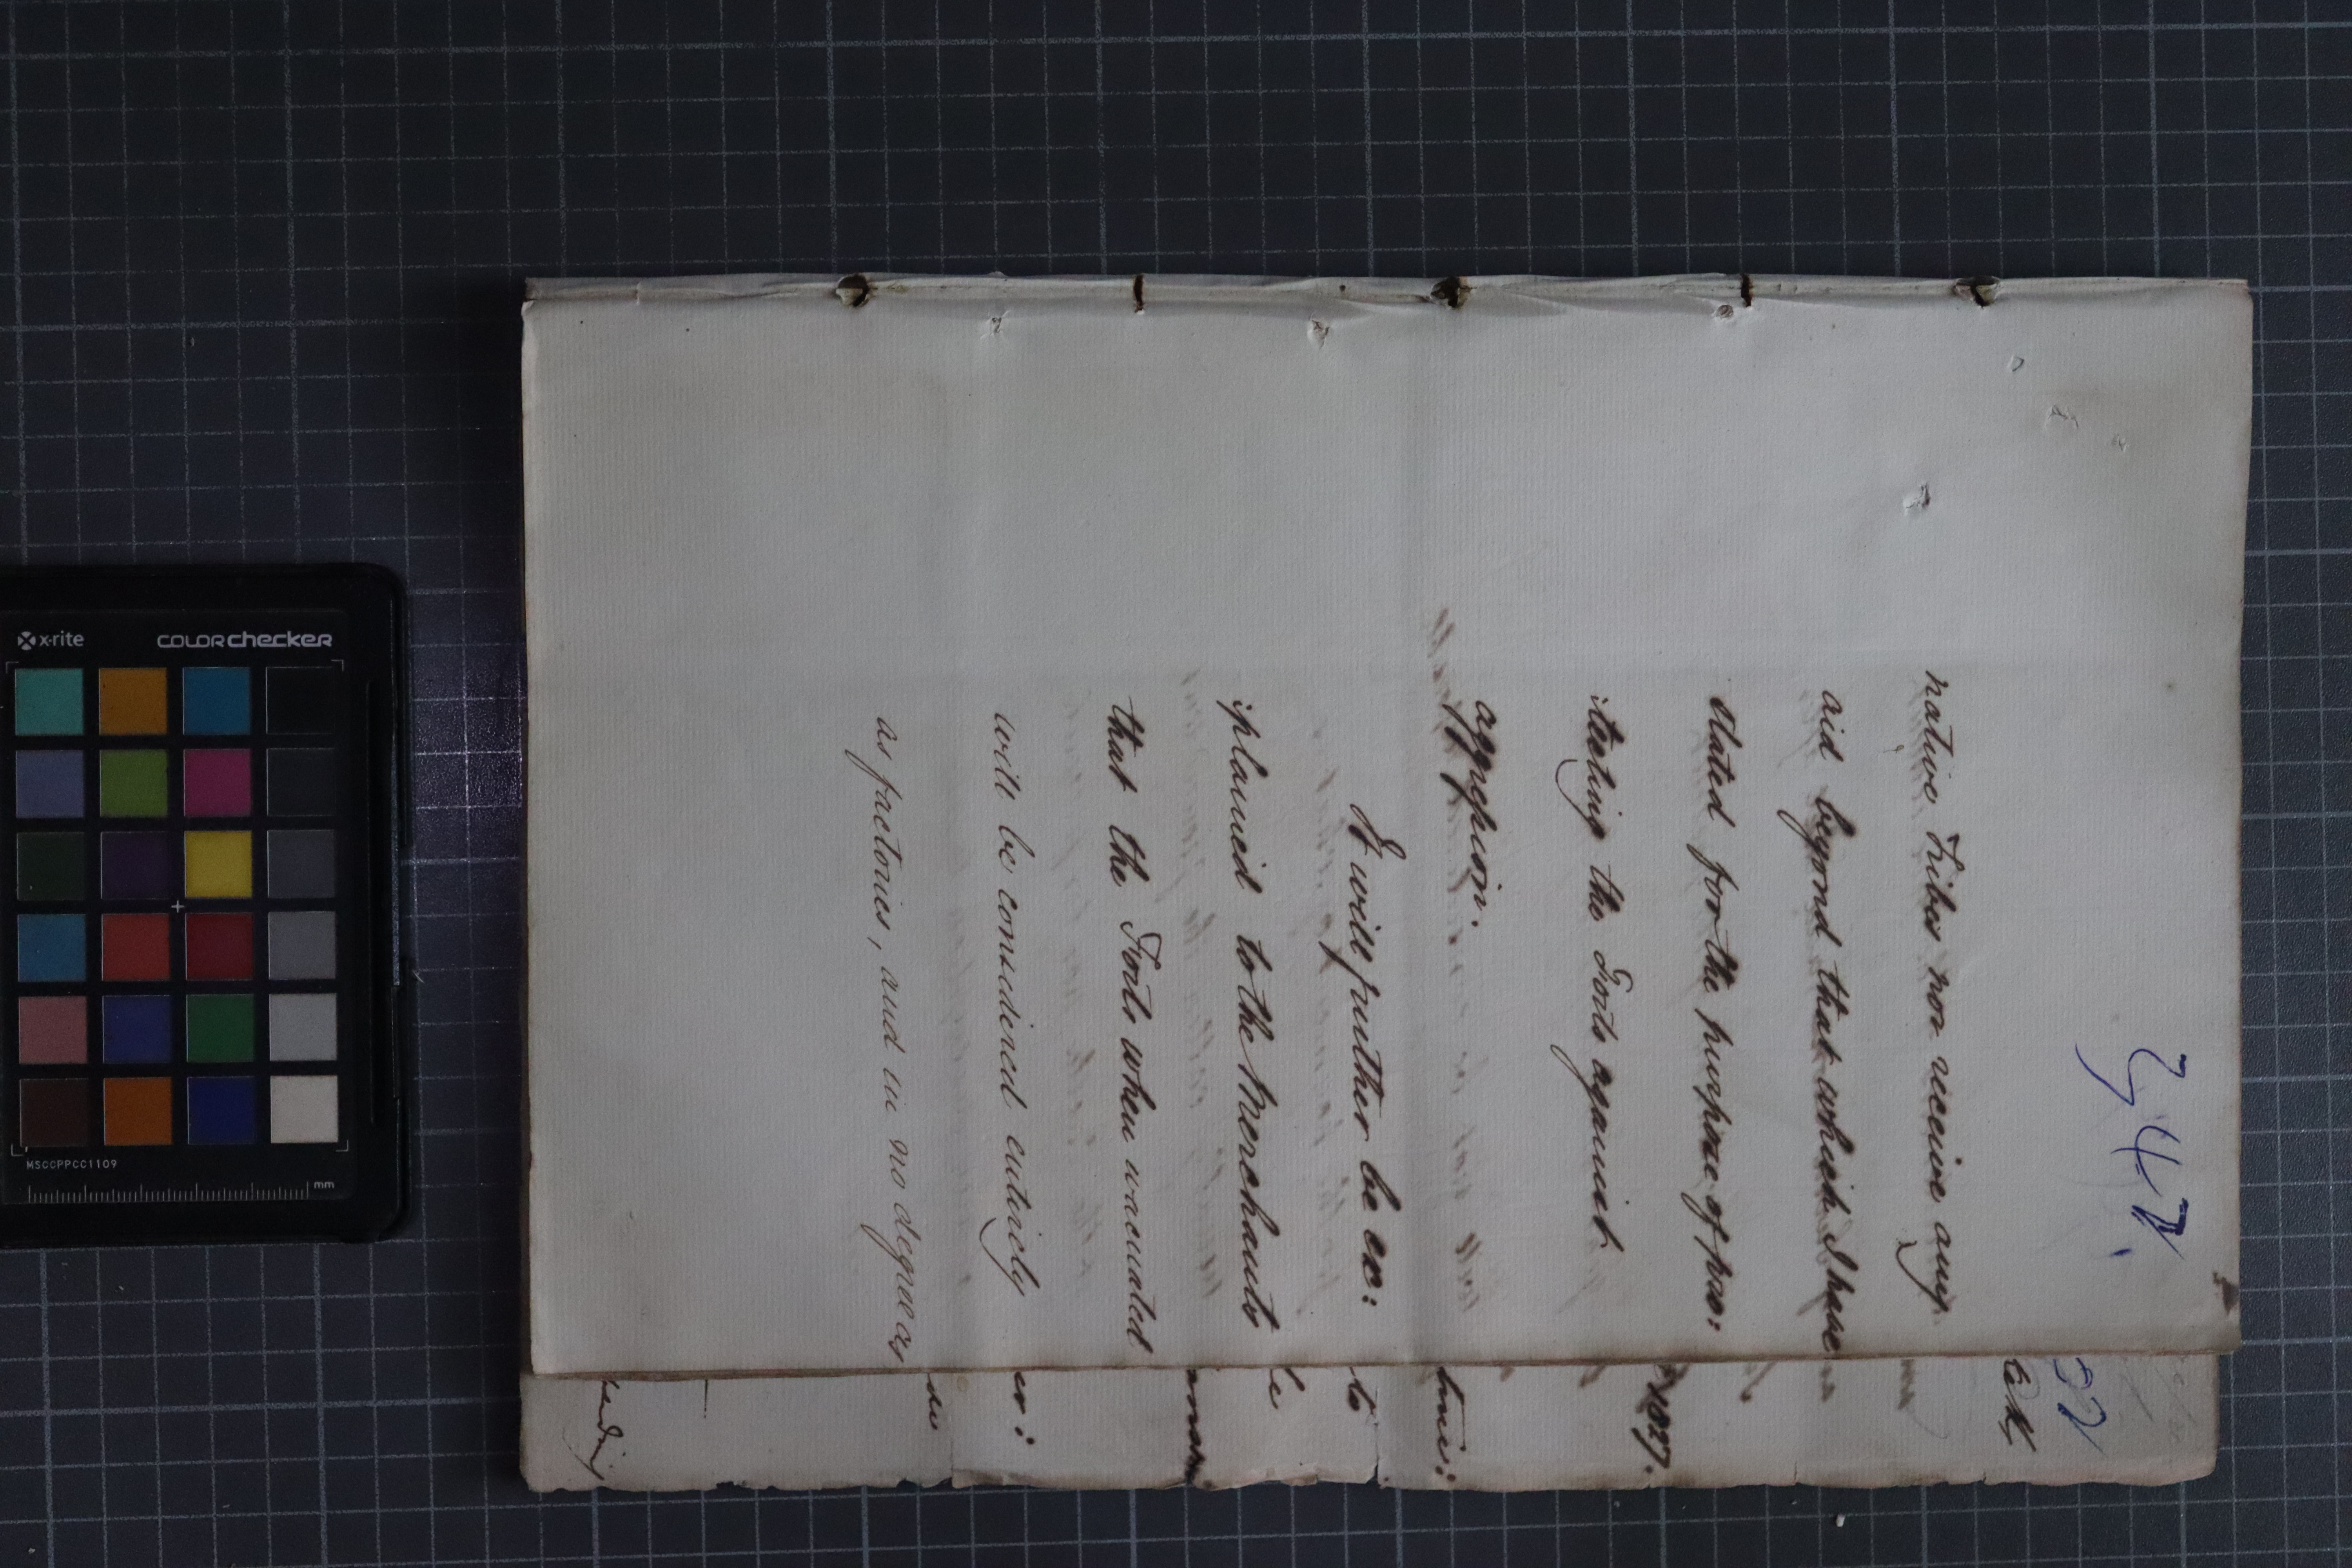 247.
native Tribes nor receive any
aid beyond that which I have
stated for the purpose of pro:
:tecting the Forts against
aggression.
It will further be ex:
:plained to the Merchants
that the Forts when vacuated
will be considered entirely
as factories, and in no degree as
1827.
to
x-rite
colorchecker
MSCCPPCC1109
mm